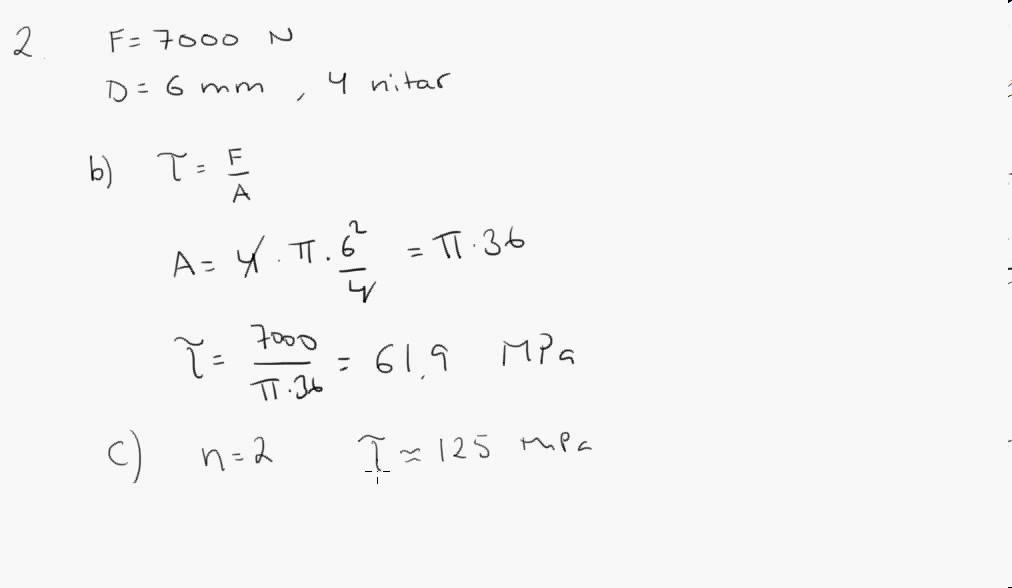 2. F = 7000 N
D = 6 mm, 4 nitar
b) τ = F/A
A = 4 · π · 6²/4 = π · 36
τ = 7000/(π · 36) = 61,9 MPa
c) n = 2 τ ≈ 125 MPa